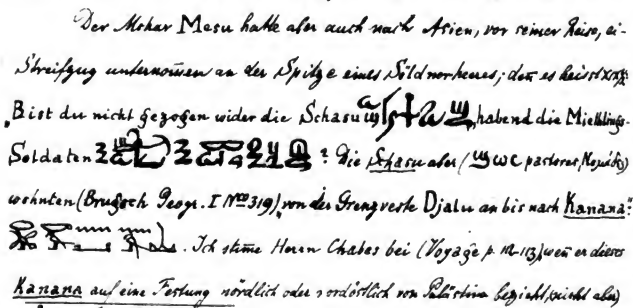 Der Mohar Mesu hatte aber auch nach Asien, vor seiner Reise, ei-
Streifzug unternommen an der Spitze eines Söldnerheeres; denn es heisst
„Bist du nicht gezogen wider die Schasu habend die Miethlings-
Soldaten ? Die Schasu aber (ϣωⲥ pastores,
wohnten (Brugsch Geogr. I No 319) „von der Grenzveste Djalu an bis nach Kanana“:
. Ich stimme Herrn Chabas bei (Voyage p. 112-113) wenn er dieses
Kanana auf eine Festung nördlich oder nordöstlich von Palästina bezieht, nicht aber